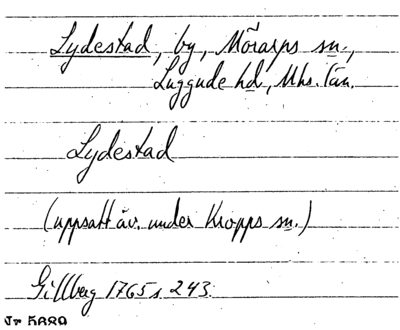 Lydestad, by, Mörarps sn.,
Luggude hd, Mhs. län.
Lydestad
(uppsatt äv. under Kropps sn.)
Gillberg 1765 s. 243.
Nr 5689